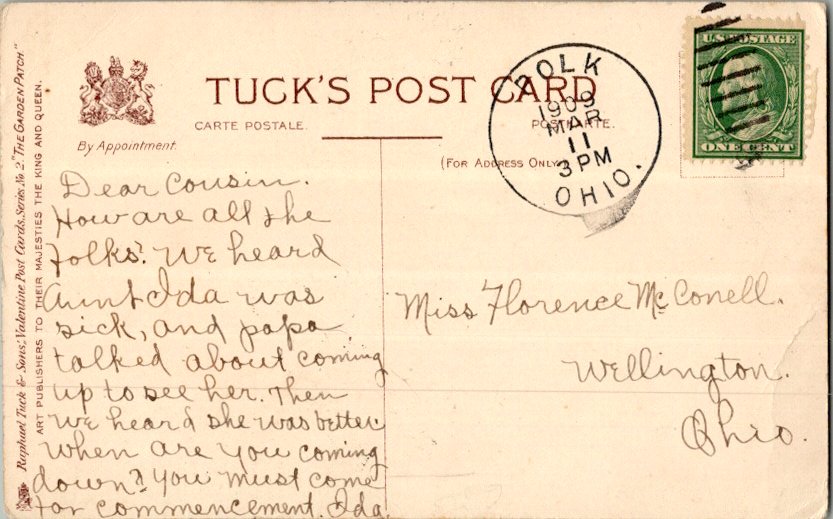 TUCK'S POST CARD
CARTE POSTALE.
POSTKARTE.
By Appointment.
(FOR ADDRESS ONLY)
POLK
1909
MAR
11
3 PM
OHIO.
U.S. POSTAGE
ONE CENT
Raphael Tuck & Sons' Valentine Post Cards, Series No. 2. "THE GARDEN PATCH."
ART PUBLISHERS TO THEIR MAJESTIES THE KING AND QUEEN.
Dear Cousin.
How are all the
folks? We heard
Aunt Ida was
sick, and papa
talked about coming
up to see her. Then
we heard she was better
when are you coming
down? You must come
for commencement. Ida.
Miss Florence McConell.
Wellington.
Ohio.